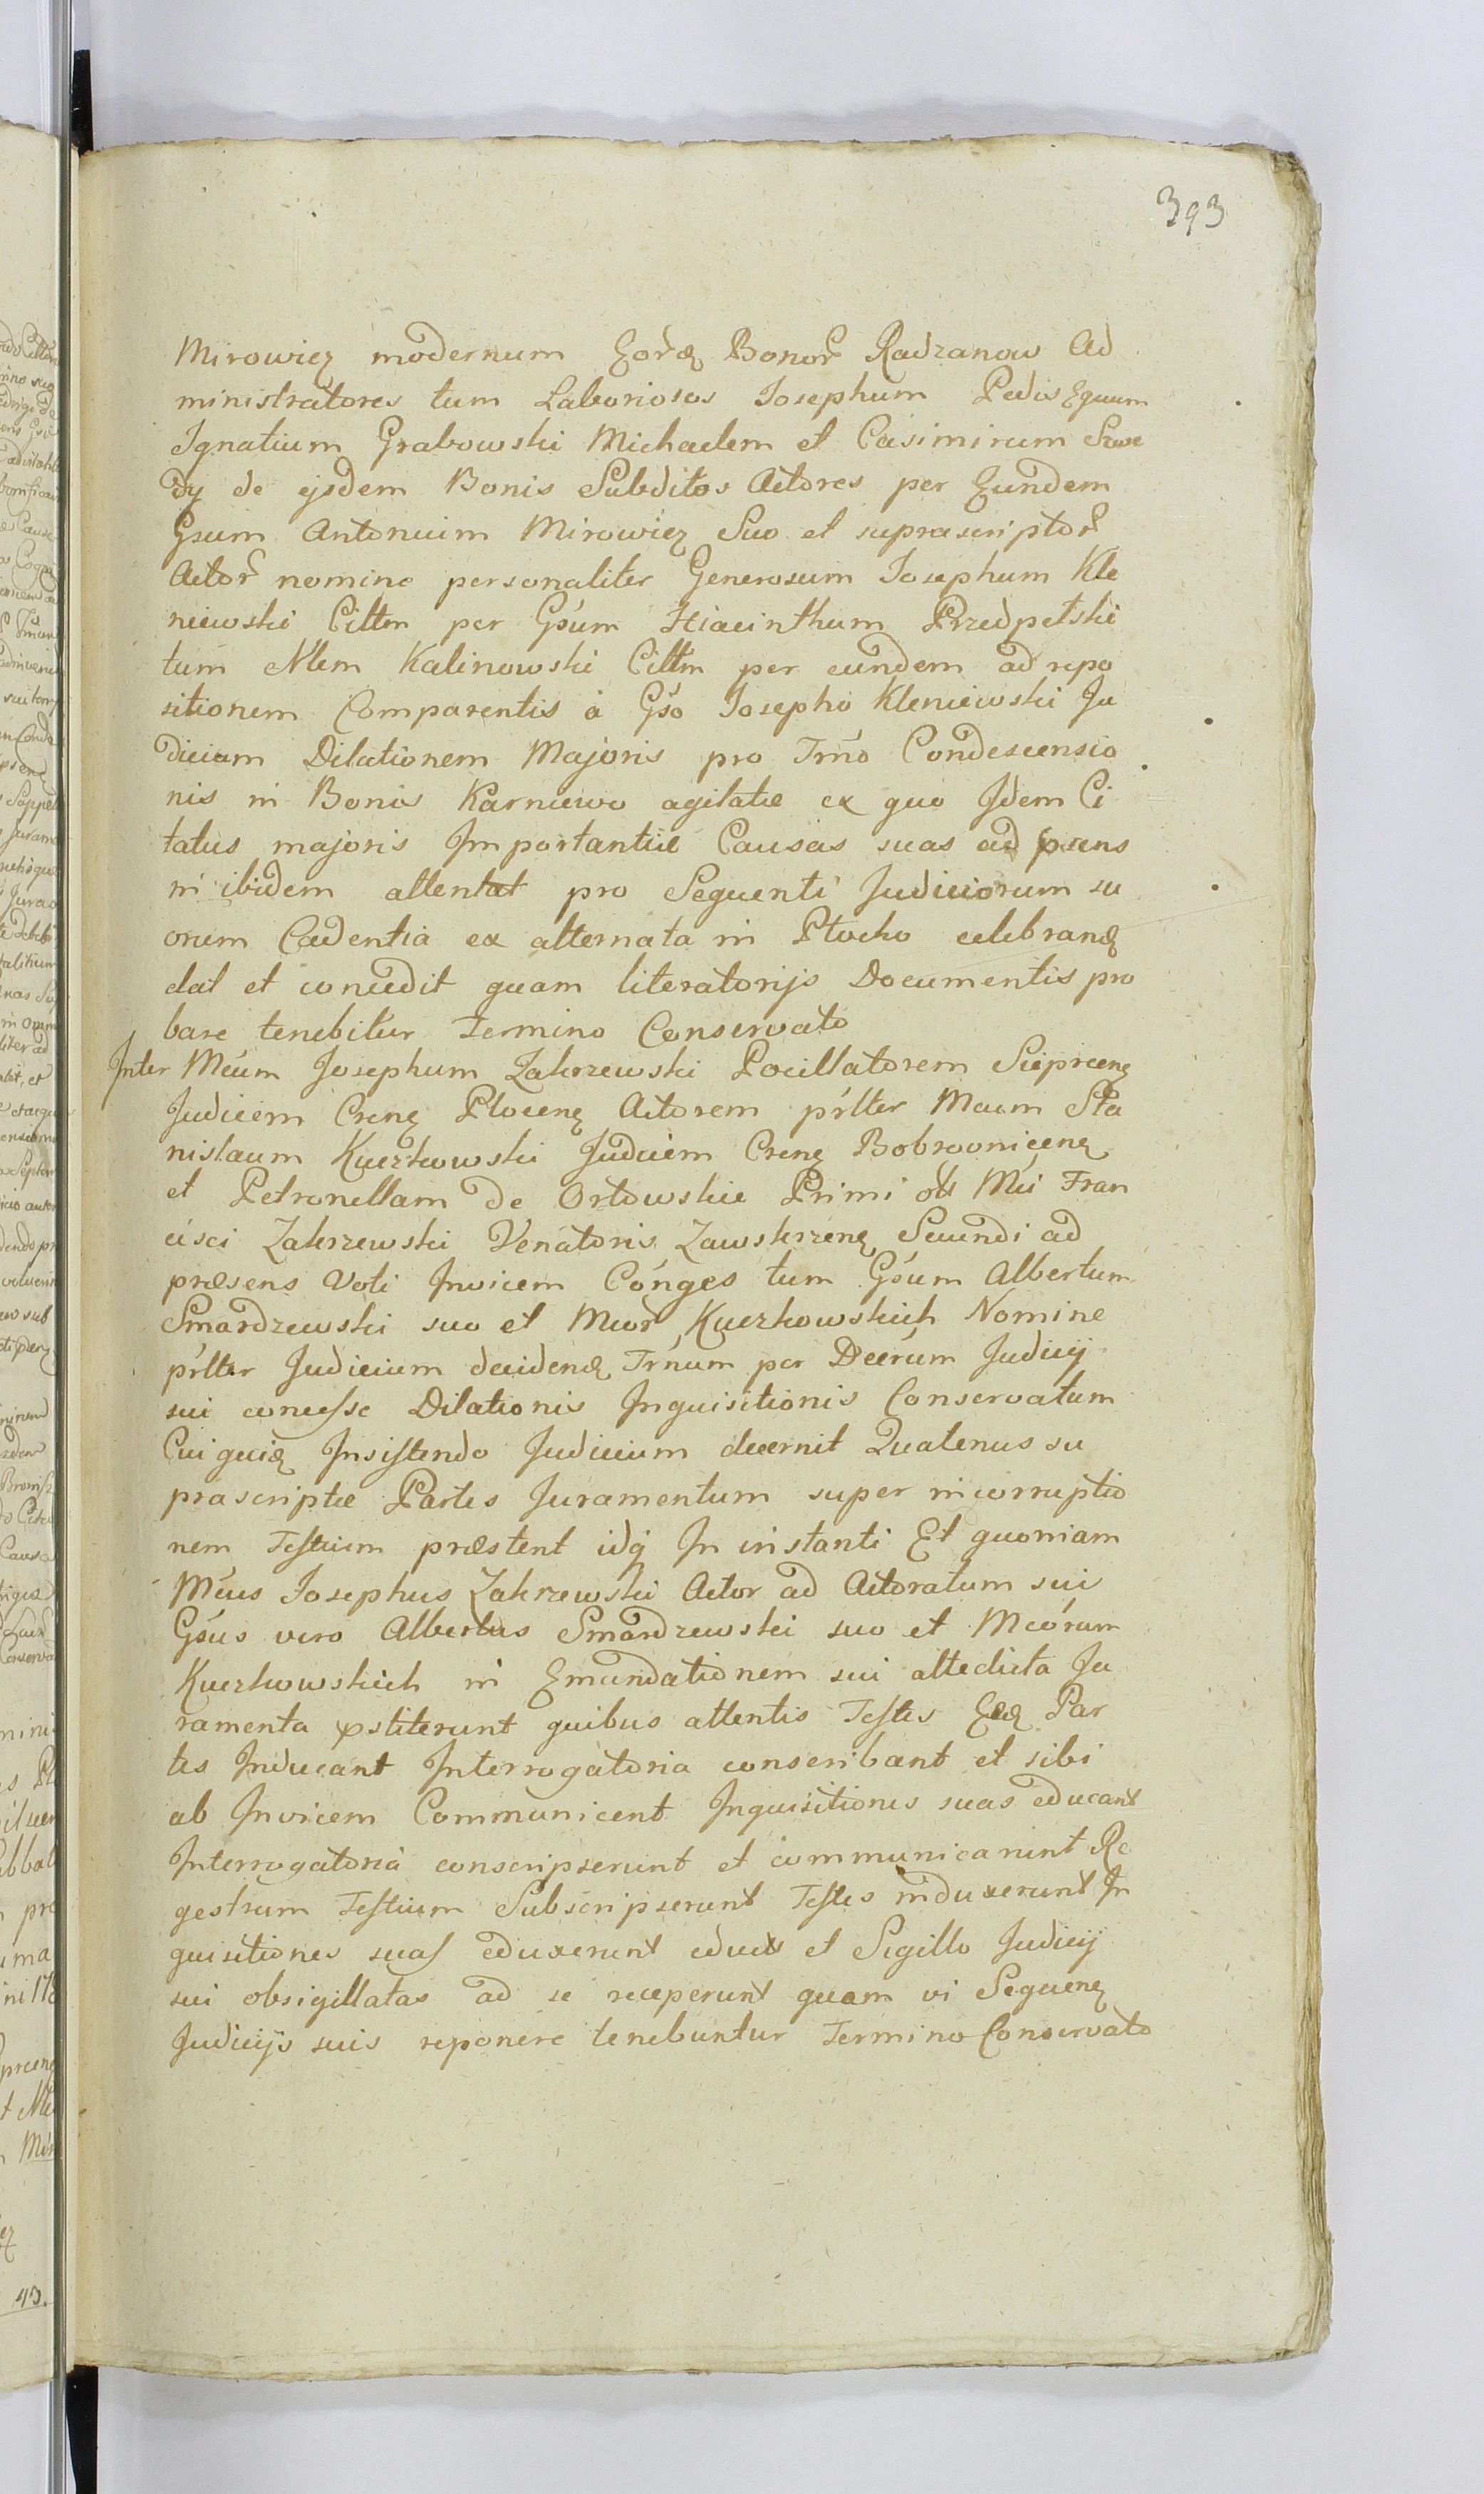 393
Mirowicz modernum Eorđ Bonor̃ Radzanow Ad
ministratores tum Laboriosos Josephum Pedis Equum
Ignatium Grabowski Michaelem et Casimirum Szwe
dy de ejsdem Bonis Subditos Actores per Eundem
Gsum Antonium Mirowicz Suo et suprascriptor̃
Actor̃ nomine personaliter Generosum Josephum Kle
niewski Cittm per Gsum Hiacinthum Przedpelski
tum Nlem Kalinowski Cittm per eundem ad repo
sitionem Comparentis à Gso Josepho Kleniewski Ju
diciam Dilationem Majoris pro Trno Condescensio
nis in Bonis Karniewo agitatæ ex quo Idem Ci
tatus majoris Importantiæ Causas suas ad præns
in ibidem attentat pro Sequenti Judiciorum su
orum Cadentia ex alternata in Plocko celebranđ
dat et concedit quam literatorijs Documentis pro
bare tenebitur Termino Conservato
Inter Mcum Josephum Zakrzewski Pocillatorem Sieprcenę
Judicem Crenę Plocenę Actorem prltter Mcum Sta
nislaum Kuczkowski Judicem Crenę Bobrovnicenę
et Petronellam de Orłowskie Primi olt Mci Fran
cisci Zakrzewski Venatoris Zawskrzenę Secundi ad
præsens Voti Invicem Conges tum Gsum Albertum
Smardzewski suo et Mcor̃ Kuczkowskich Nomine
prltter Judicium decidenđ Trnum per Decrum Judicij
sui concesse Dilationis Inquisitionis Conservatum
Cui quiđ Insistendo Judicium decernit Quatenus su
prascriptæ Partes Juramentum super incorruptio
nem Testium præstent idq In instanti Et quoniam
Mcus Josephus Zakrzewski Actor ad Actoratum sui
Gsus vero Albertus Smardzewski suo et Mcorum
Kuczkowskich in Emundationem sui attedicta Ju
ramenta pstiterunt quibus attentis Testes Eæđ Par
tes Inducant Interrogatoria conscribant et sibi
ab Invicem Communicent Inquisitiones suas educant
Interrogatoria conscripserunt et communicarunt Re
gestrum Testium Subscripserunt Testes induxerunt In
quisitiones suas eduxerunt educt et Sigillo Judicij
sui obsigillatas ad se receperunt quam vi Sequenę
Judicijs suis reponere tenebuntur Termino Conservato